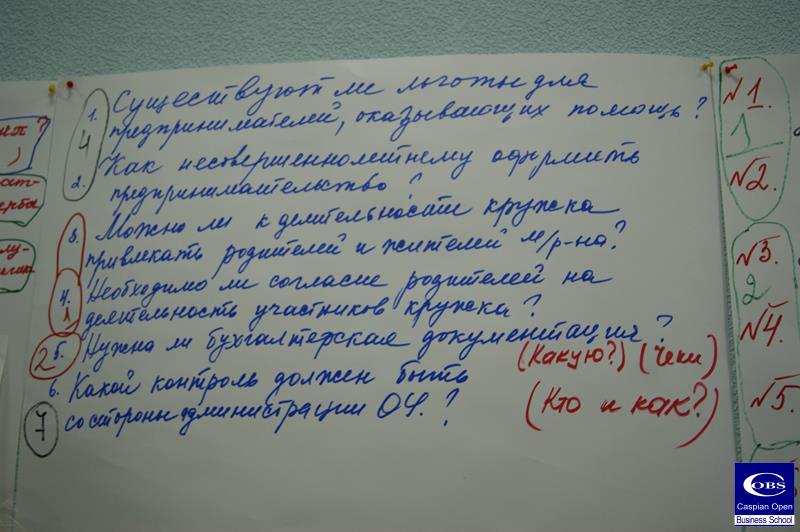 1. Существуют ли льготы для
предпринимателей, оказывающих помощь?
4
2. Как несовершеннолетнему оформить
предпринимательство?
3. Можно ли к деятельности кружка
привлекать родителей и жителей м/р-на?
4. Необходимо ли согласие родителей на
1 деятельность участников кружка?
2 5. Нужна ли бухгалтерская документация?
(Какую?) (Чеки)
6. Какой контроль должен быть
7 со стороны администрации ОУ.?
(Кто и как?)
№1.
№2.
№3.
2
№4.
№5.
COBS
Caspian Open
Business School